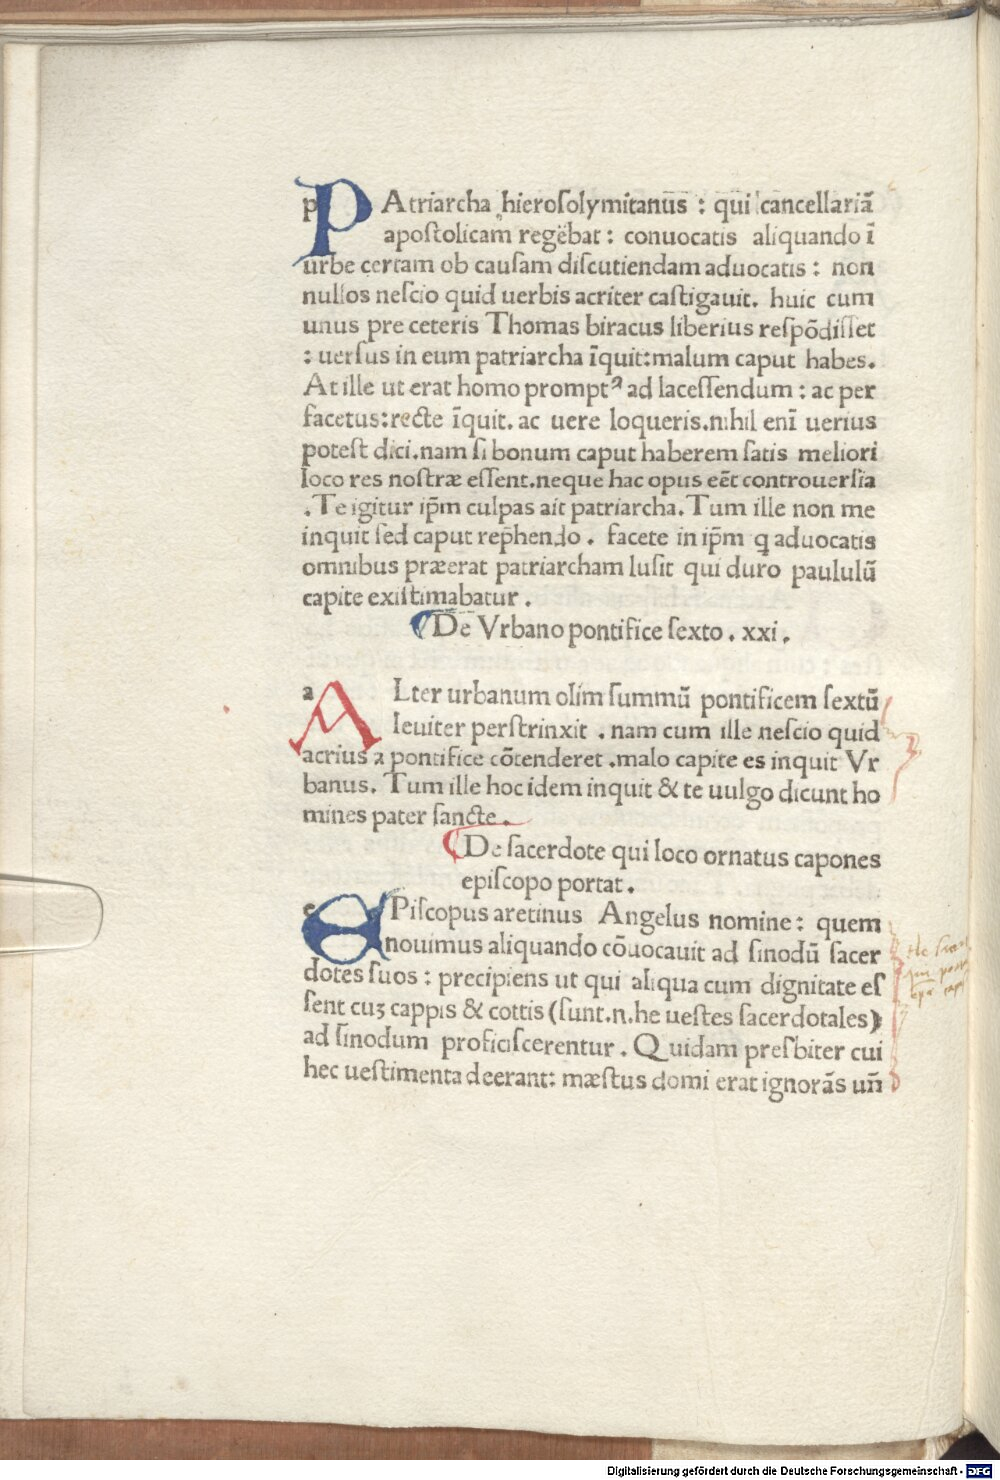 PAtriarcha hieroſolymitanus : qui cancellariā
apoſtolicam regebat : conuocatis aliquando ī
urbe certam ob cauſam diſcutiendam aduocatis : non
nullos neſcio quid uerbis acriter caſtigauit. huic cum
unus pre ceteris Thomas biracus liberius reſpōdiſſet
: uerſus in eum patriarcha īquit:malum caput habes.
At ille ut erat homo promptꝰ ad laceſſendum : ac per
facetus:recte īquit. ac uere loqueris.nihil enī uerius
poteſt dici.nam ſi bonum caput haberem ſatis meliori
loco res noſtræ eſſent.neque hac opus eēt controuerſia
.Te igitur ip̄m culpas ait patriarcha.Tum ille non me
inquit ſed caput rep̄hendo . facete in ip̄m ꝗ aduocatis
omnibus præerat patriarcham luſit qui duro paululū
capite exiſtimabatur .
De Vrbano pontifice ſexto . xxi .
ALter urbanum olim ſummū pontificem ſextū
leuiter perſtrinxit . nam cum ille neſcio quid
acrius a pontifice cōtenderet .malo capite es inquit Vr
banus. Tum ille hoc idem inquit & te uulgo dicunt ho
mines pater ſancte .
De ſacerdote qui loco ornatus capones
epiſcopo portat .
EPiſcopus aretinus Angelus nomine : quem
nouimus aliquando cōuocauit ad ſinodū ſacer
dotes ſuos : precipiens ut qui aliqua cum dignitate eſ
ſent cuꝫ cappis & cottis (ſunt.n.he ueſtes ſacerdotales)
ad ſinodum proficiſcerentur . Quidam preſbiter cui
hec ueſtimenta deerant: mæſtus domi erat ignorās un̄
Digitalisierung gefördert durch die Deutsche Forschungsgemeinschaft - DFG